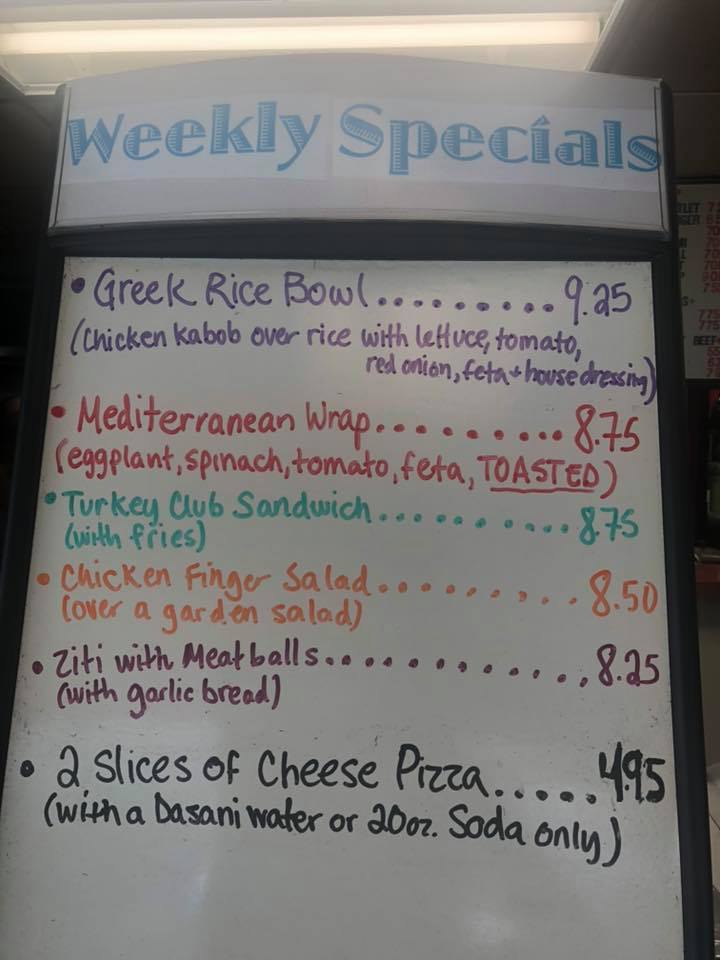 Weekly Specials
• Greek Rice Bowl.........9.25
(Chicken kabob over rice with lettuce, tomato,
red onion, feta + house dressing)
• Mediterranean Wrap.........8.75
(eggplant, spinach, tomato, feta, TOASTED)
• Turkey Club Sandwich.........8.75
(with fries)
• Chicken Finger Salad.........8.50
(over a garden salad)
• Ziti with Meatballs............8.25
(with garlic bread)
• 2 Slices of Cheese Pizza.....4.95
(with a Dasani water or 20oz. Soda only)